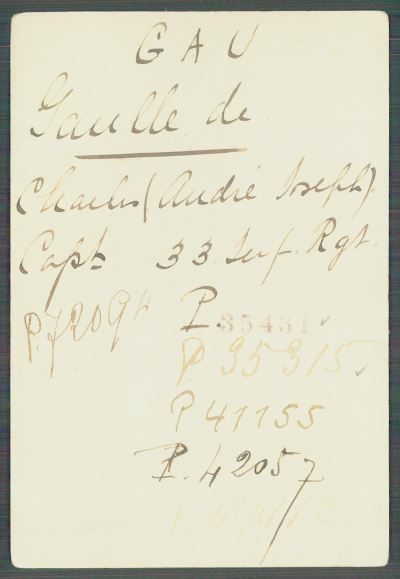 GAU
Gaulle de
Charles (André Joseph)
Capt 33 Inf. Rgt.
P. 72094 P. 35431
P 35315
P 41155
P. 42057